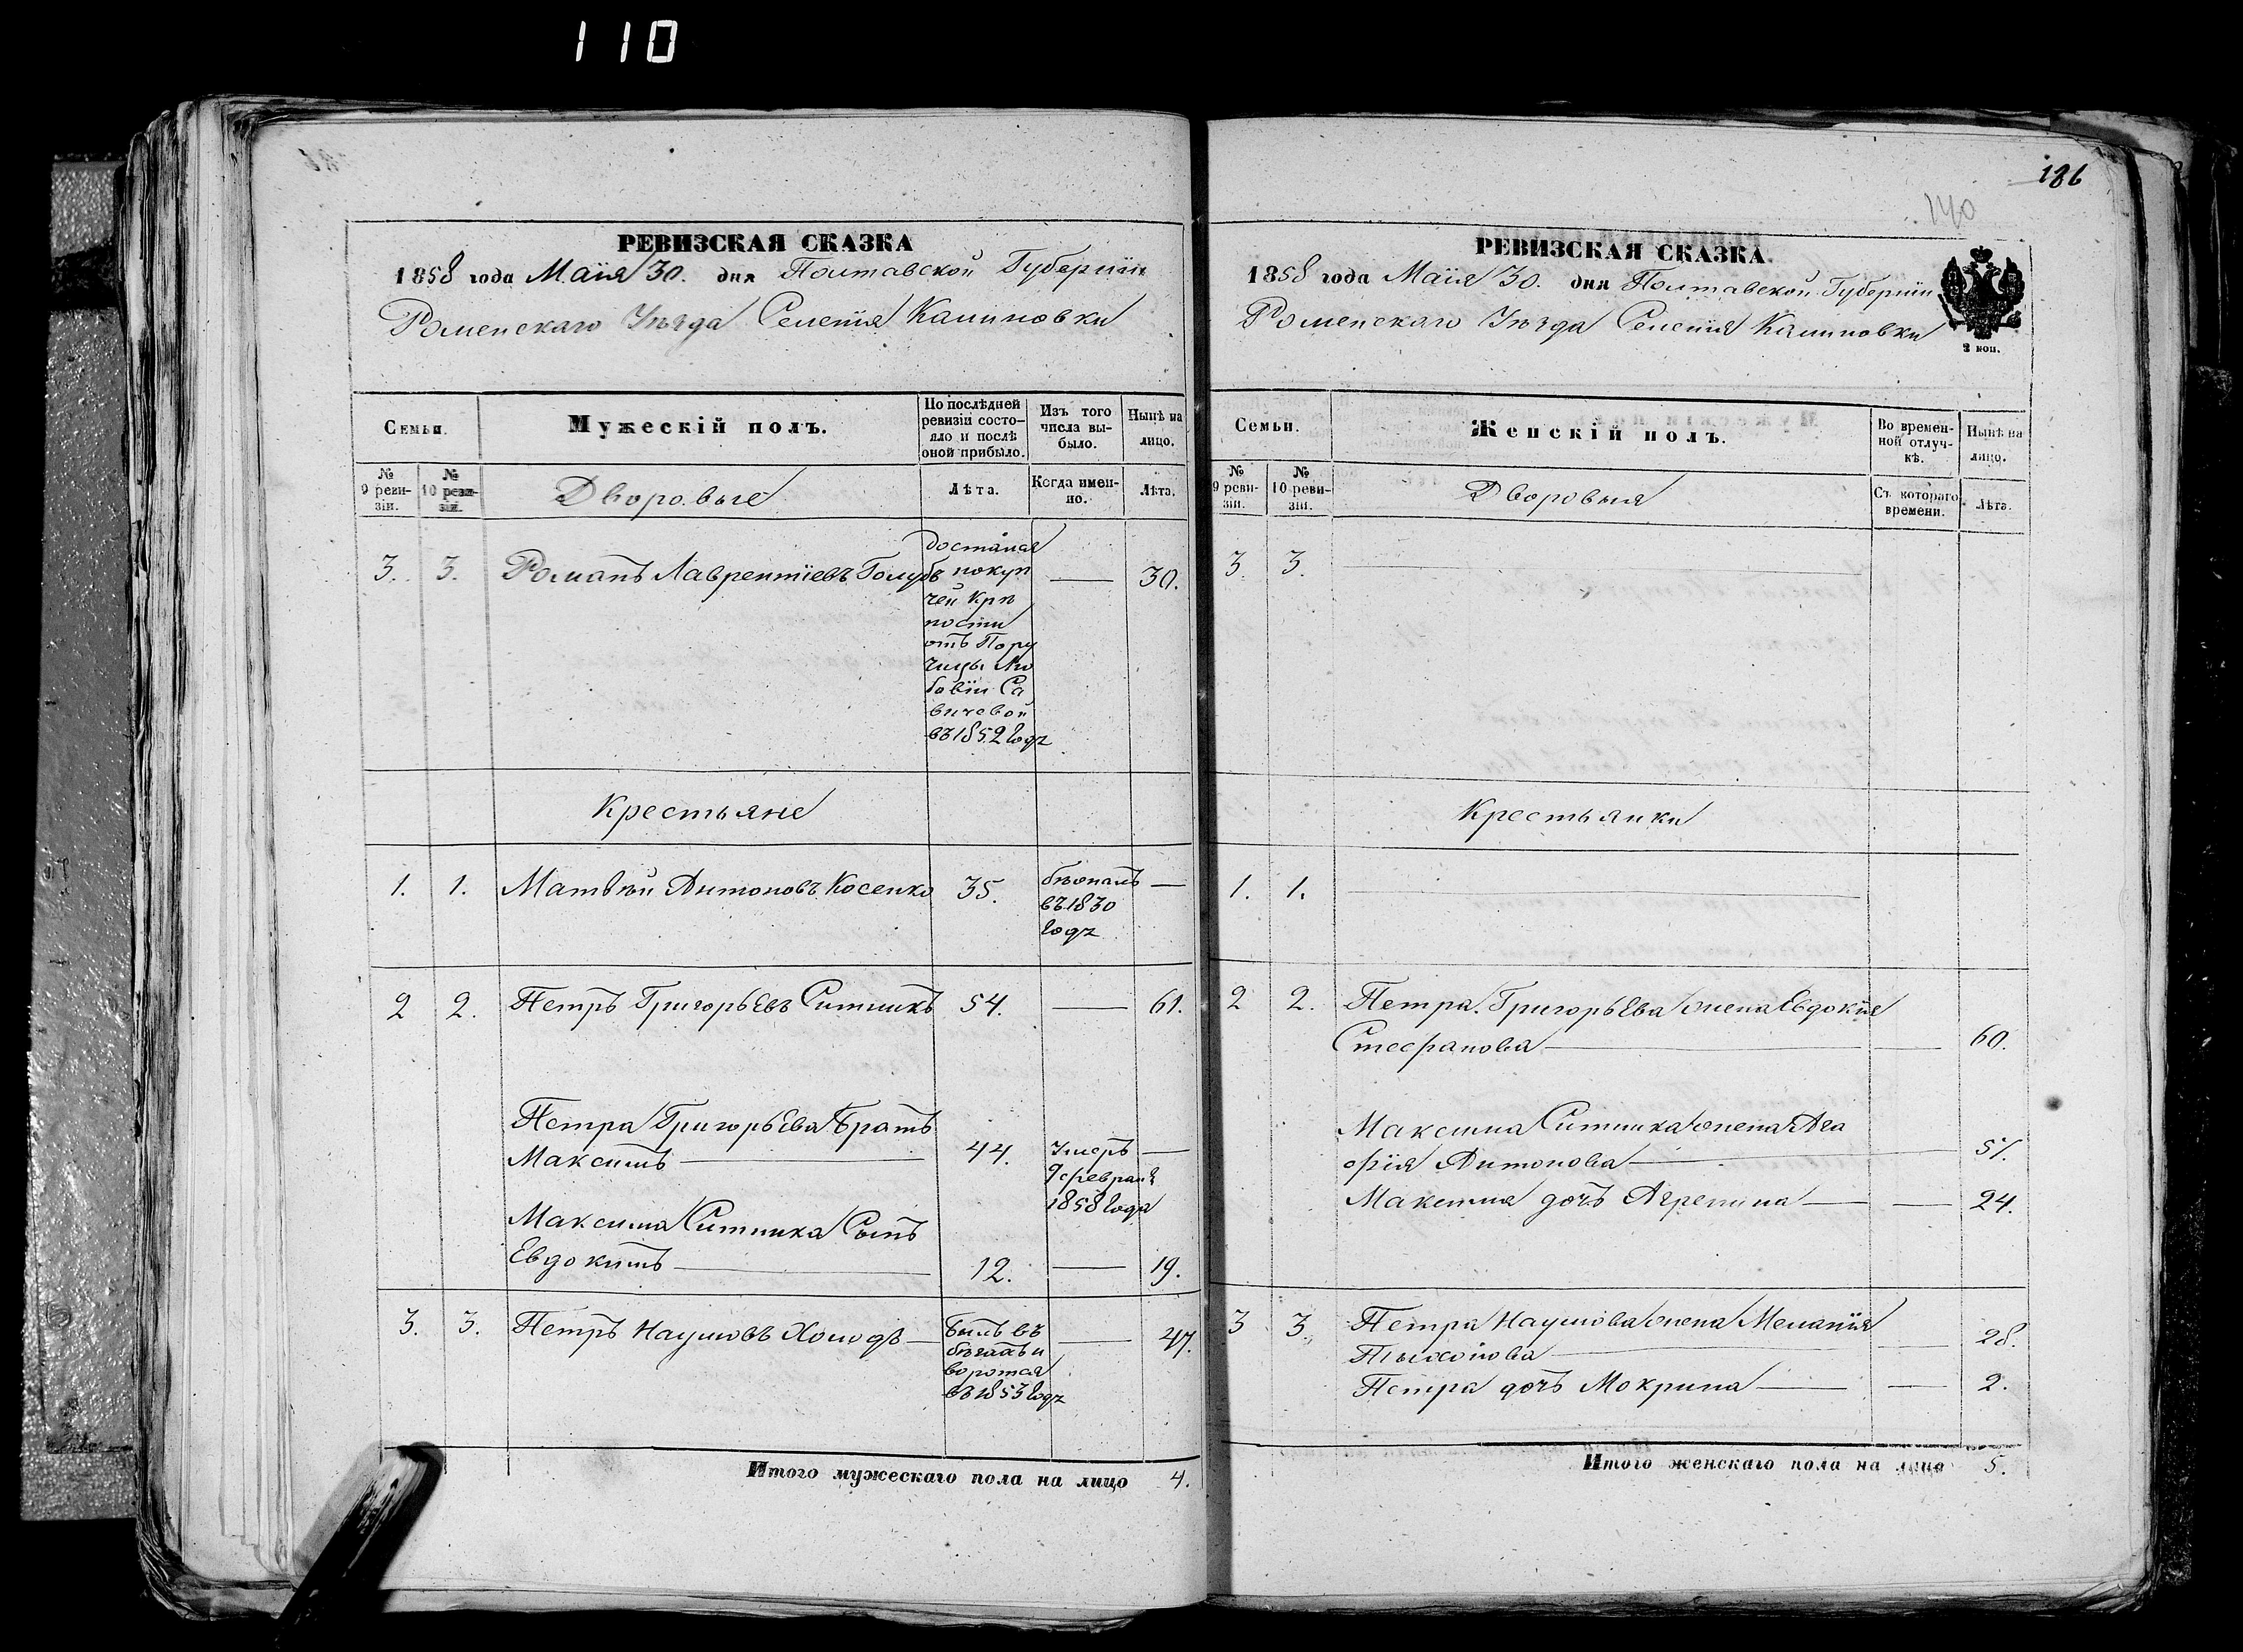 110
186
140
РЕВИЗСКАЯ СКАЗКА
1858 года Маія 30. дня Полтавской Губерніи
Роменскаго Уѣзда Селенія Калиновки
Семьи.
Мужескій полъ.
По послѣдней
ревизіи состо-
яло и послѣ
оной прибыло.
Изъ того
числа вы-
было.
Нынѣ на
лицо.
№
9 реви-
зіи.
№
10 реви-
зіи.
Дворовые
Лѣта.
Когда имен-
но.
Лѣта.
3. 3. Романъ Лаврентіевъ Голубъ — 30.
достался
покуп
чей Крѣ
пости
отъ Пору
чицы Лю
бовіи Са
вичевой
въ 1852 годѣ
Крестьяне
1. 1. Матвѣй Антоновъ Косенко 35. —
бѣжалъ
въ 1830
годѣ
2 2. Петръ Григорьевъ Ситникъ 54. — 61.
Петра Григорьева Братъ
Максимъ — 44. —
Умеръ
9 февраля
1858 года
Максима Ситника Сынъ
Евдокимъ — 12. — 19.
3. 3. Петръ Наумовъ Холодъ — — 47.
Былъ въ
бѣгахъ и
воротся
въ 1853 годѣ
Итого мужескаго пола на лицо 4.
РЕВИЗСКАЯ СКАЗКА.
1858 года Маія 30. дня Полтавской Губерніи
Роменскаго Уѣзда Селенія Калиновки
2 коп.
Семьи.
Женскій полъ.
Во времен-
ной отлуч-
кѣ.
Нынѣ на
лицо.
№
9 реви-
зіи.
№
10 реви-
зіи.
Дворовыя
Съ котораго
времени.
Лѣта.
3. 3. —
Крестьянки
1. 1. —
2 2. Петра Григорьева жена Евдокія
Стефанова — — 60.
Максима Ситника жена Ага
фія Антонова — 51.
Максима дочь Агрепина — — 24.
3 3. Петра Наумова жена Меланія
Тыхонова — — 28.
Петра дочь Мокрина — — 2.
Итого женскаго пола на лицо 5.